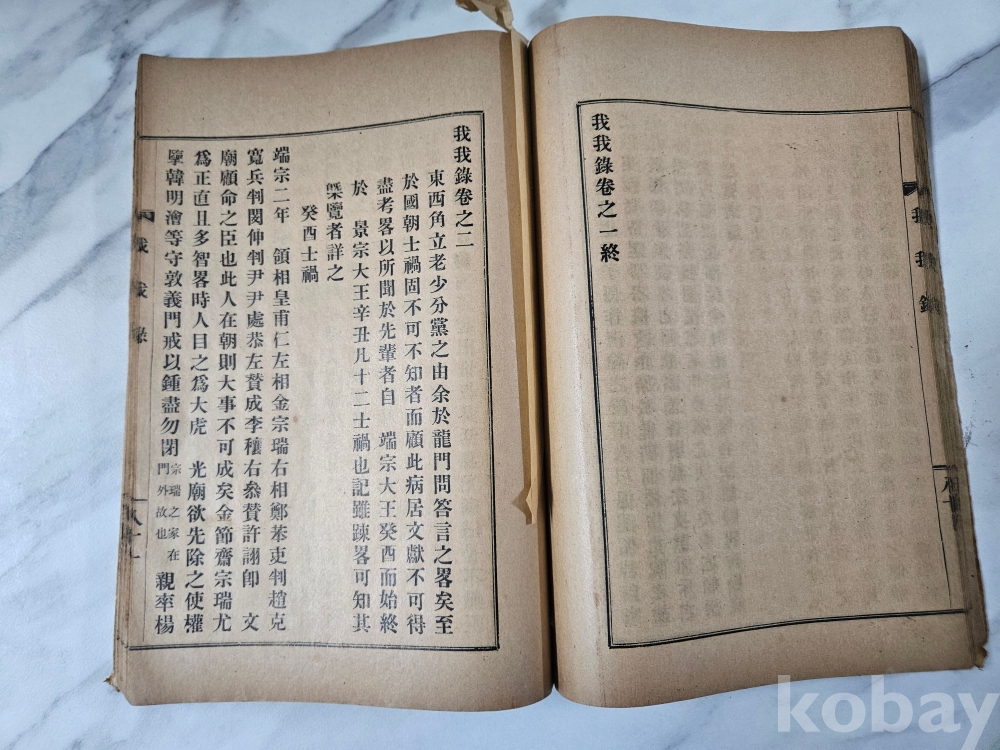 我我錄卷之一終
我我錄卷之二
東西角立老少分黨之由余於龍門問答言之畧矣至
於國朝士禍固不可不知者而顧此病居文獻不可得
盡考畧以所聞於先輩者自 端宗大王癸酉而始終
於 景宗大王辛丑凡十二士禍也記雖踈畧可知其
槩覽者詳之
癸酉士禍
端宗二年 領相皇甫仁左相金宗瑞右相鄭苯吏判趙克
寬兵判閔伸判尹尹處恭左贊成李穰右叅贊許詡卽 文
廟顧命之臣也此人在朝則大事不可成矣金節齋宗瑞尤
爲正直且多智畧時人目之爲大虎 光廟欲先除之使權
擥韓明澮等守敦義門戒以鍾盡勿閉宗瑞之家在門外故也 親率楊
我我錄
kobay